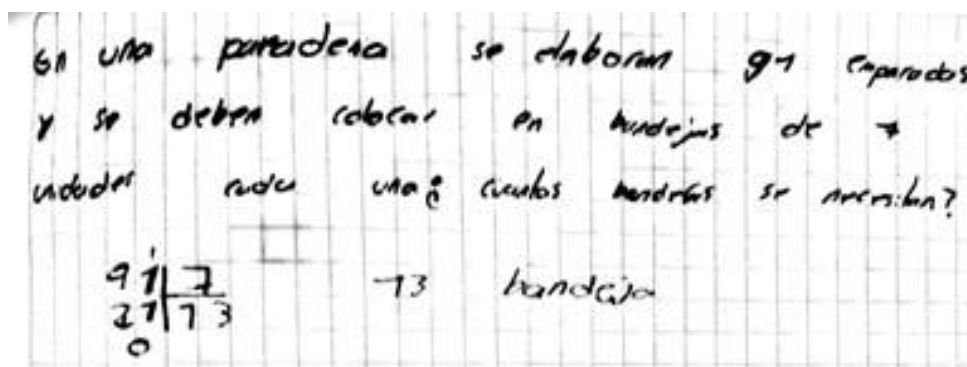 En una panadería se elaboran 91 empanadas
y se deben colocar en bandejas de 7
unidades cada una ¿ cuantas bandejas se necesitan?
91 | 7 13 bandeja
21 | 13
0